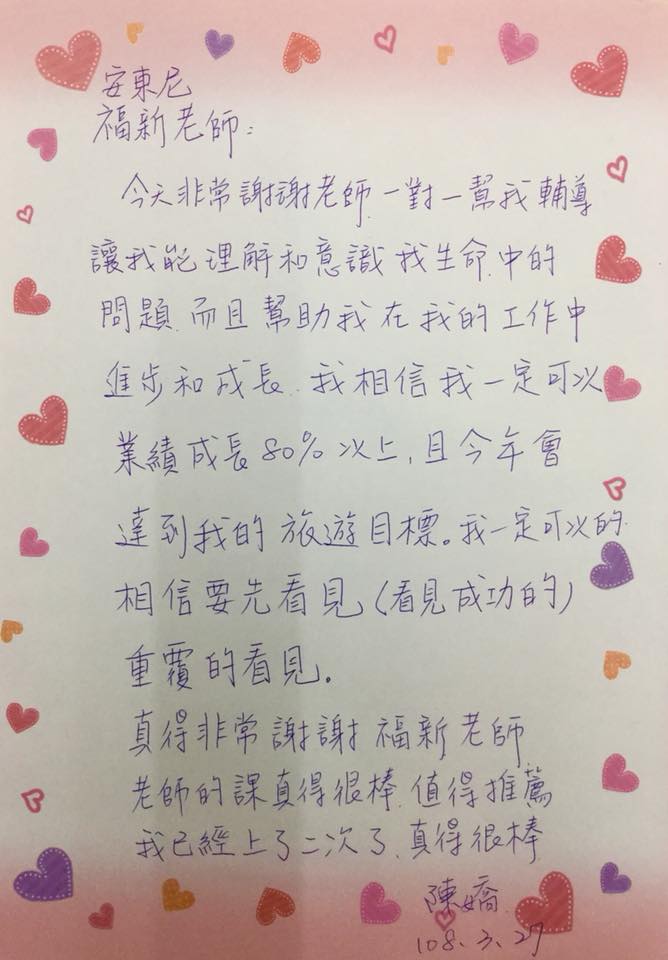 安東尼
福新老師:
今天非常謝謝老師、一對一幫我輔導
讓我能理解和意識我生命中的
問題、而且幫助我在我的工作中
進步和成長、我相信我一定可以
業績成長80%以上,且今年會
達到我的旅遊目標。我一定可以的
相信要先看見(看見成功的)
重覆的看見。
真得非常謝謝福新老師
老師的課真得很棒、值得推薦
我已經上了二次了、真得很棒
陳嬌
108.3.27